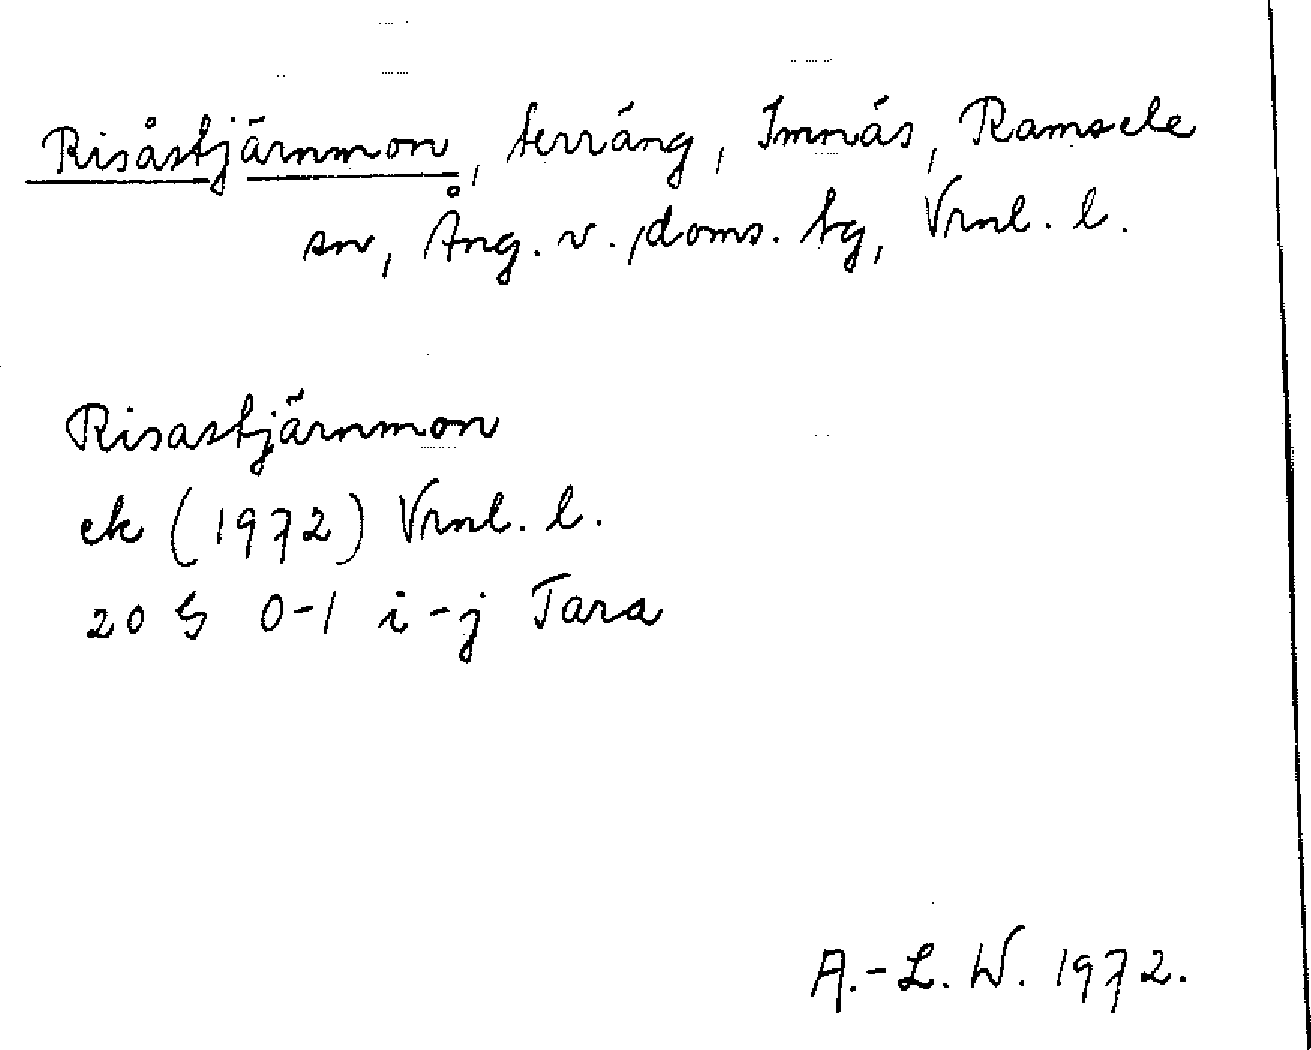 Risåstjärnmon, terräng, Imnäs, Ramsele
sn, Ång. v. doms. tg, Vrnl. l.
Risastjärnmon
ek (1972) Vrnl. l.
20 G 0-1 i-j Tara
A.-L. W. 1972.